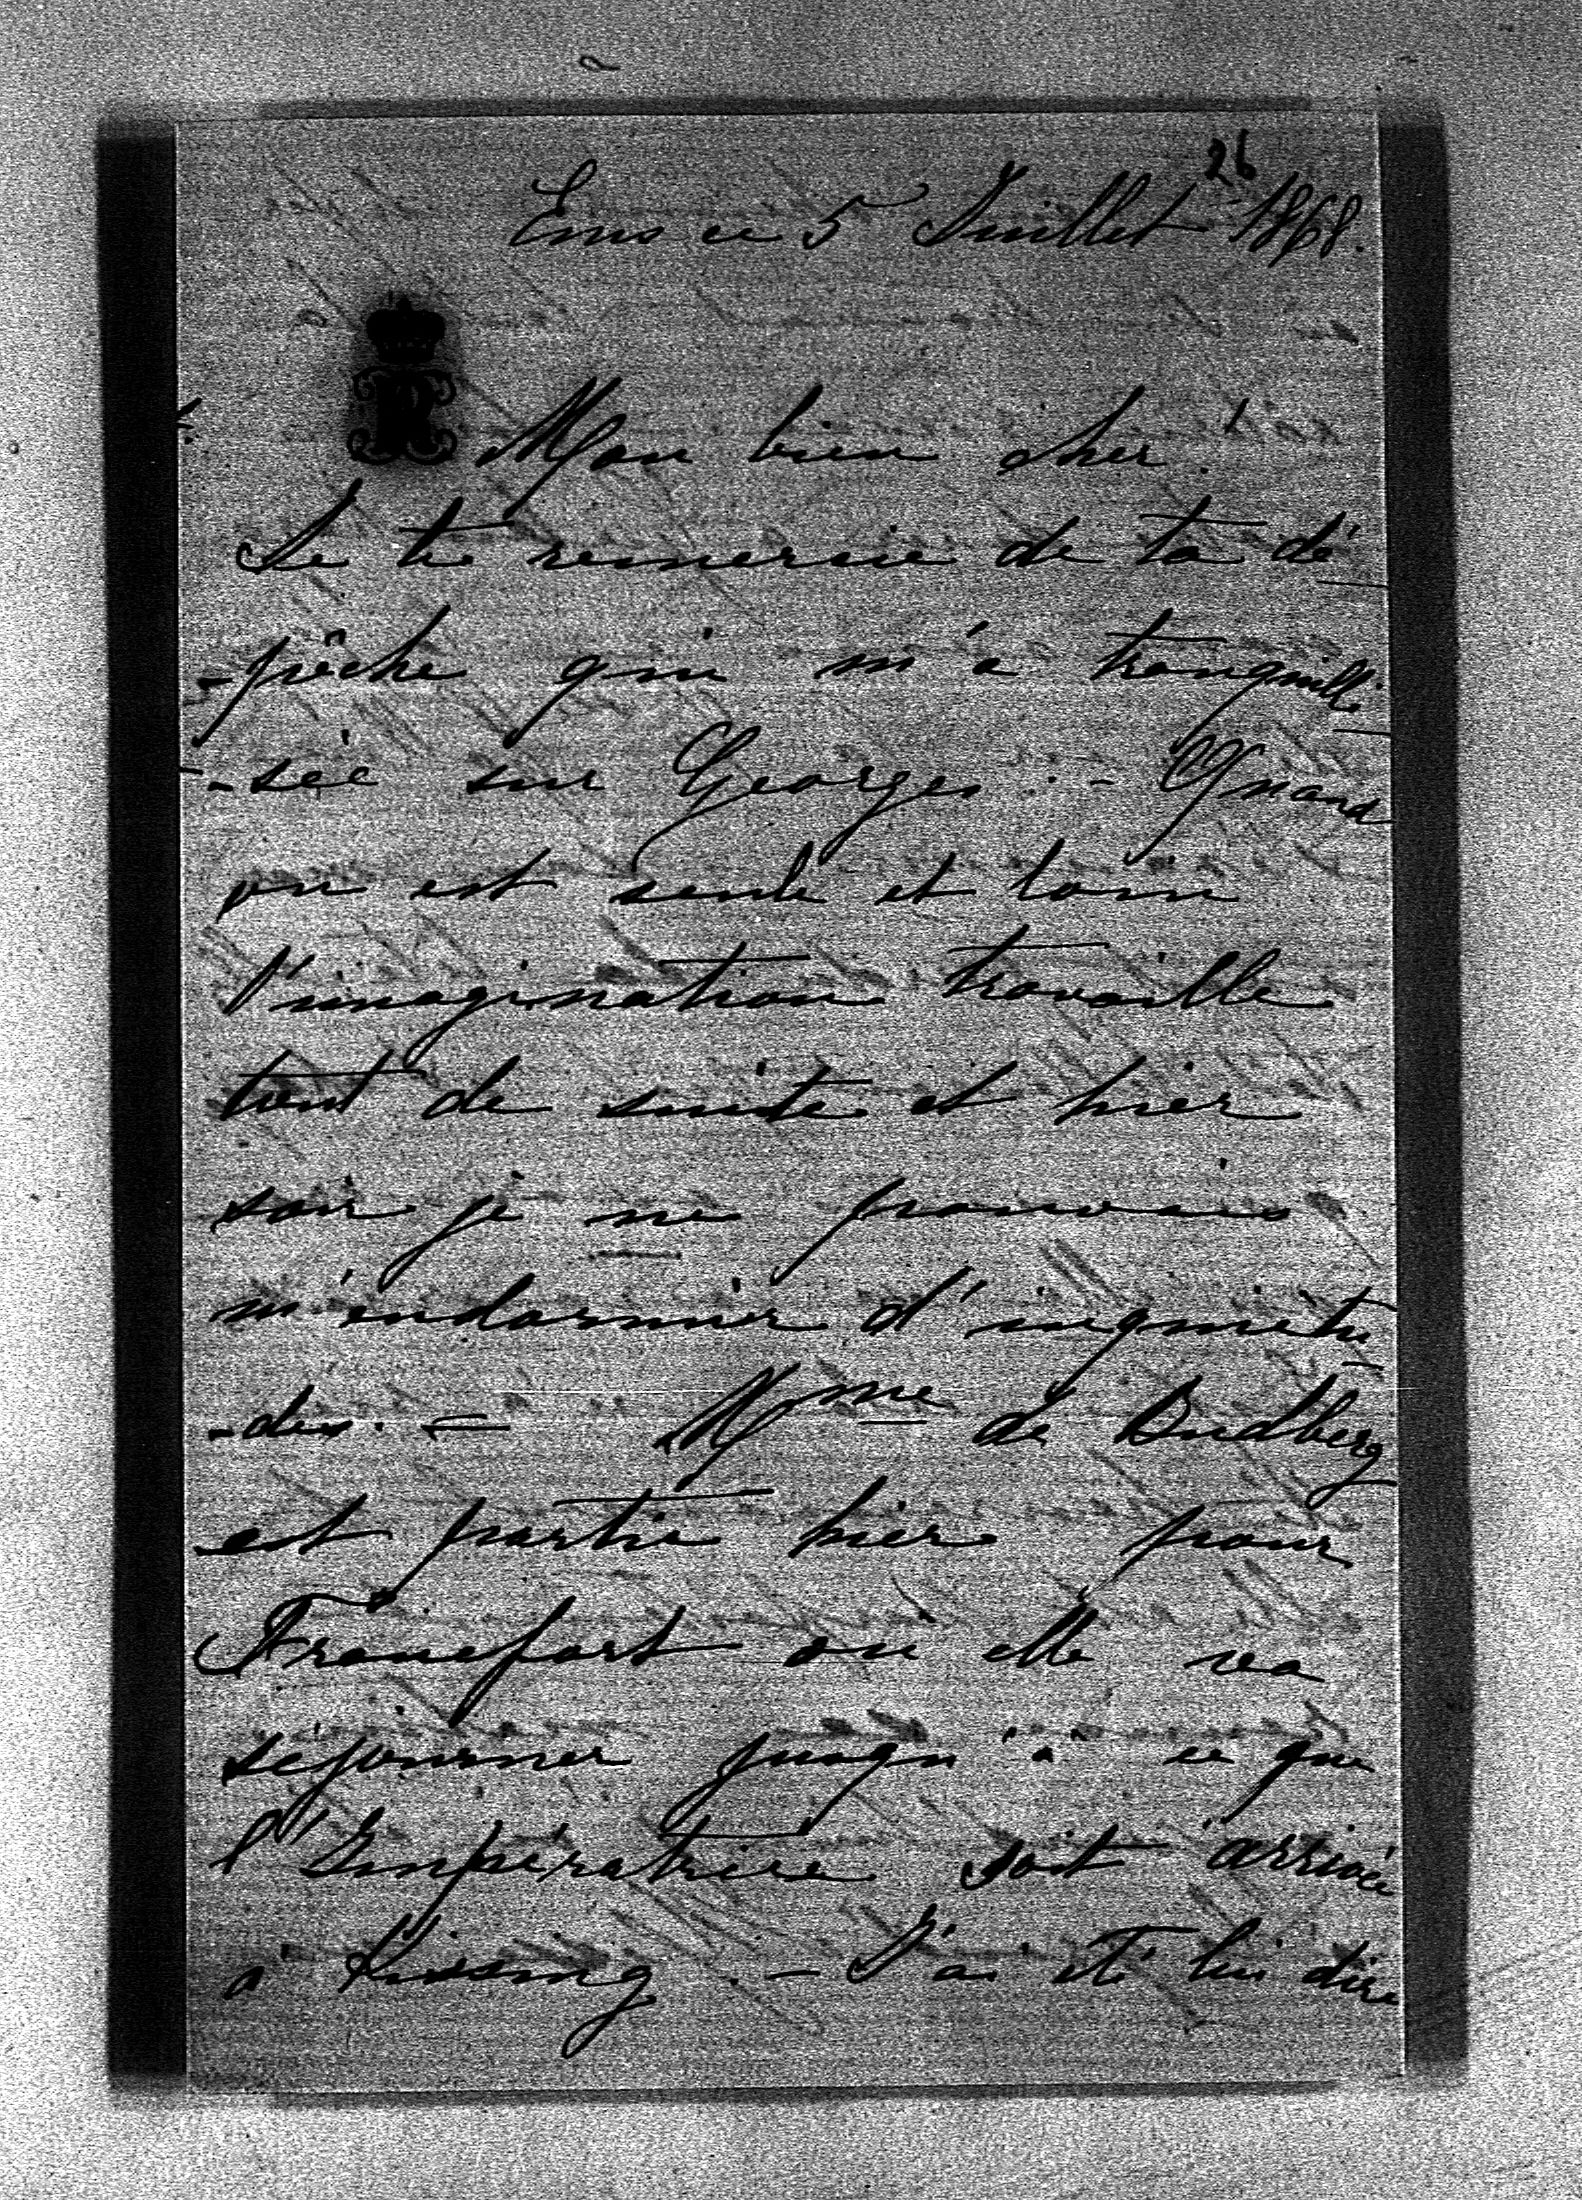 26
Ems ce 5 Juillet 1868.
Mon bien cher!
Je te remercie de ta dé
-pêche qui m'a tranquilli-
-sée sur Georges. - Quand
on est seule et loin
l'imagination travaille
tout de suite et hier
soir je ne pouvais
m'endormir d'inquiétu-
-des. - Mme de Budberg
est partie hier pour
Francfort ou elle va
séjourner jusqu'à ce que
l'Impératrice soit arrivée
à Kissing. - J'ai été lui dire